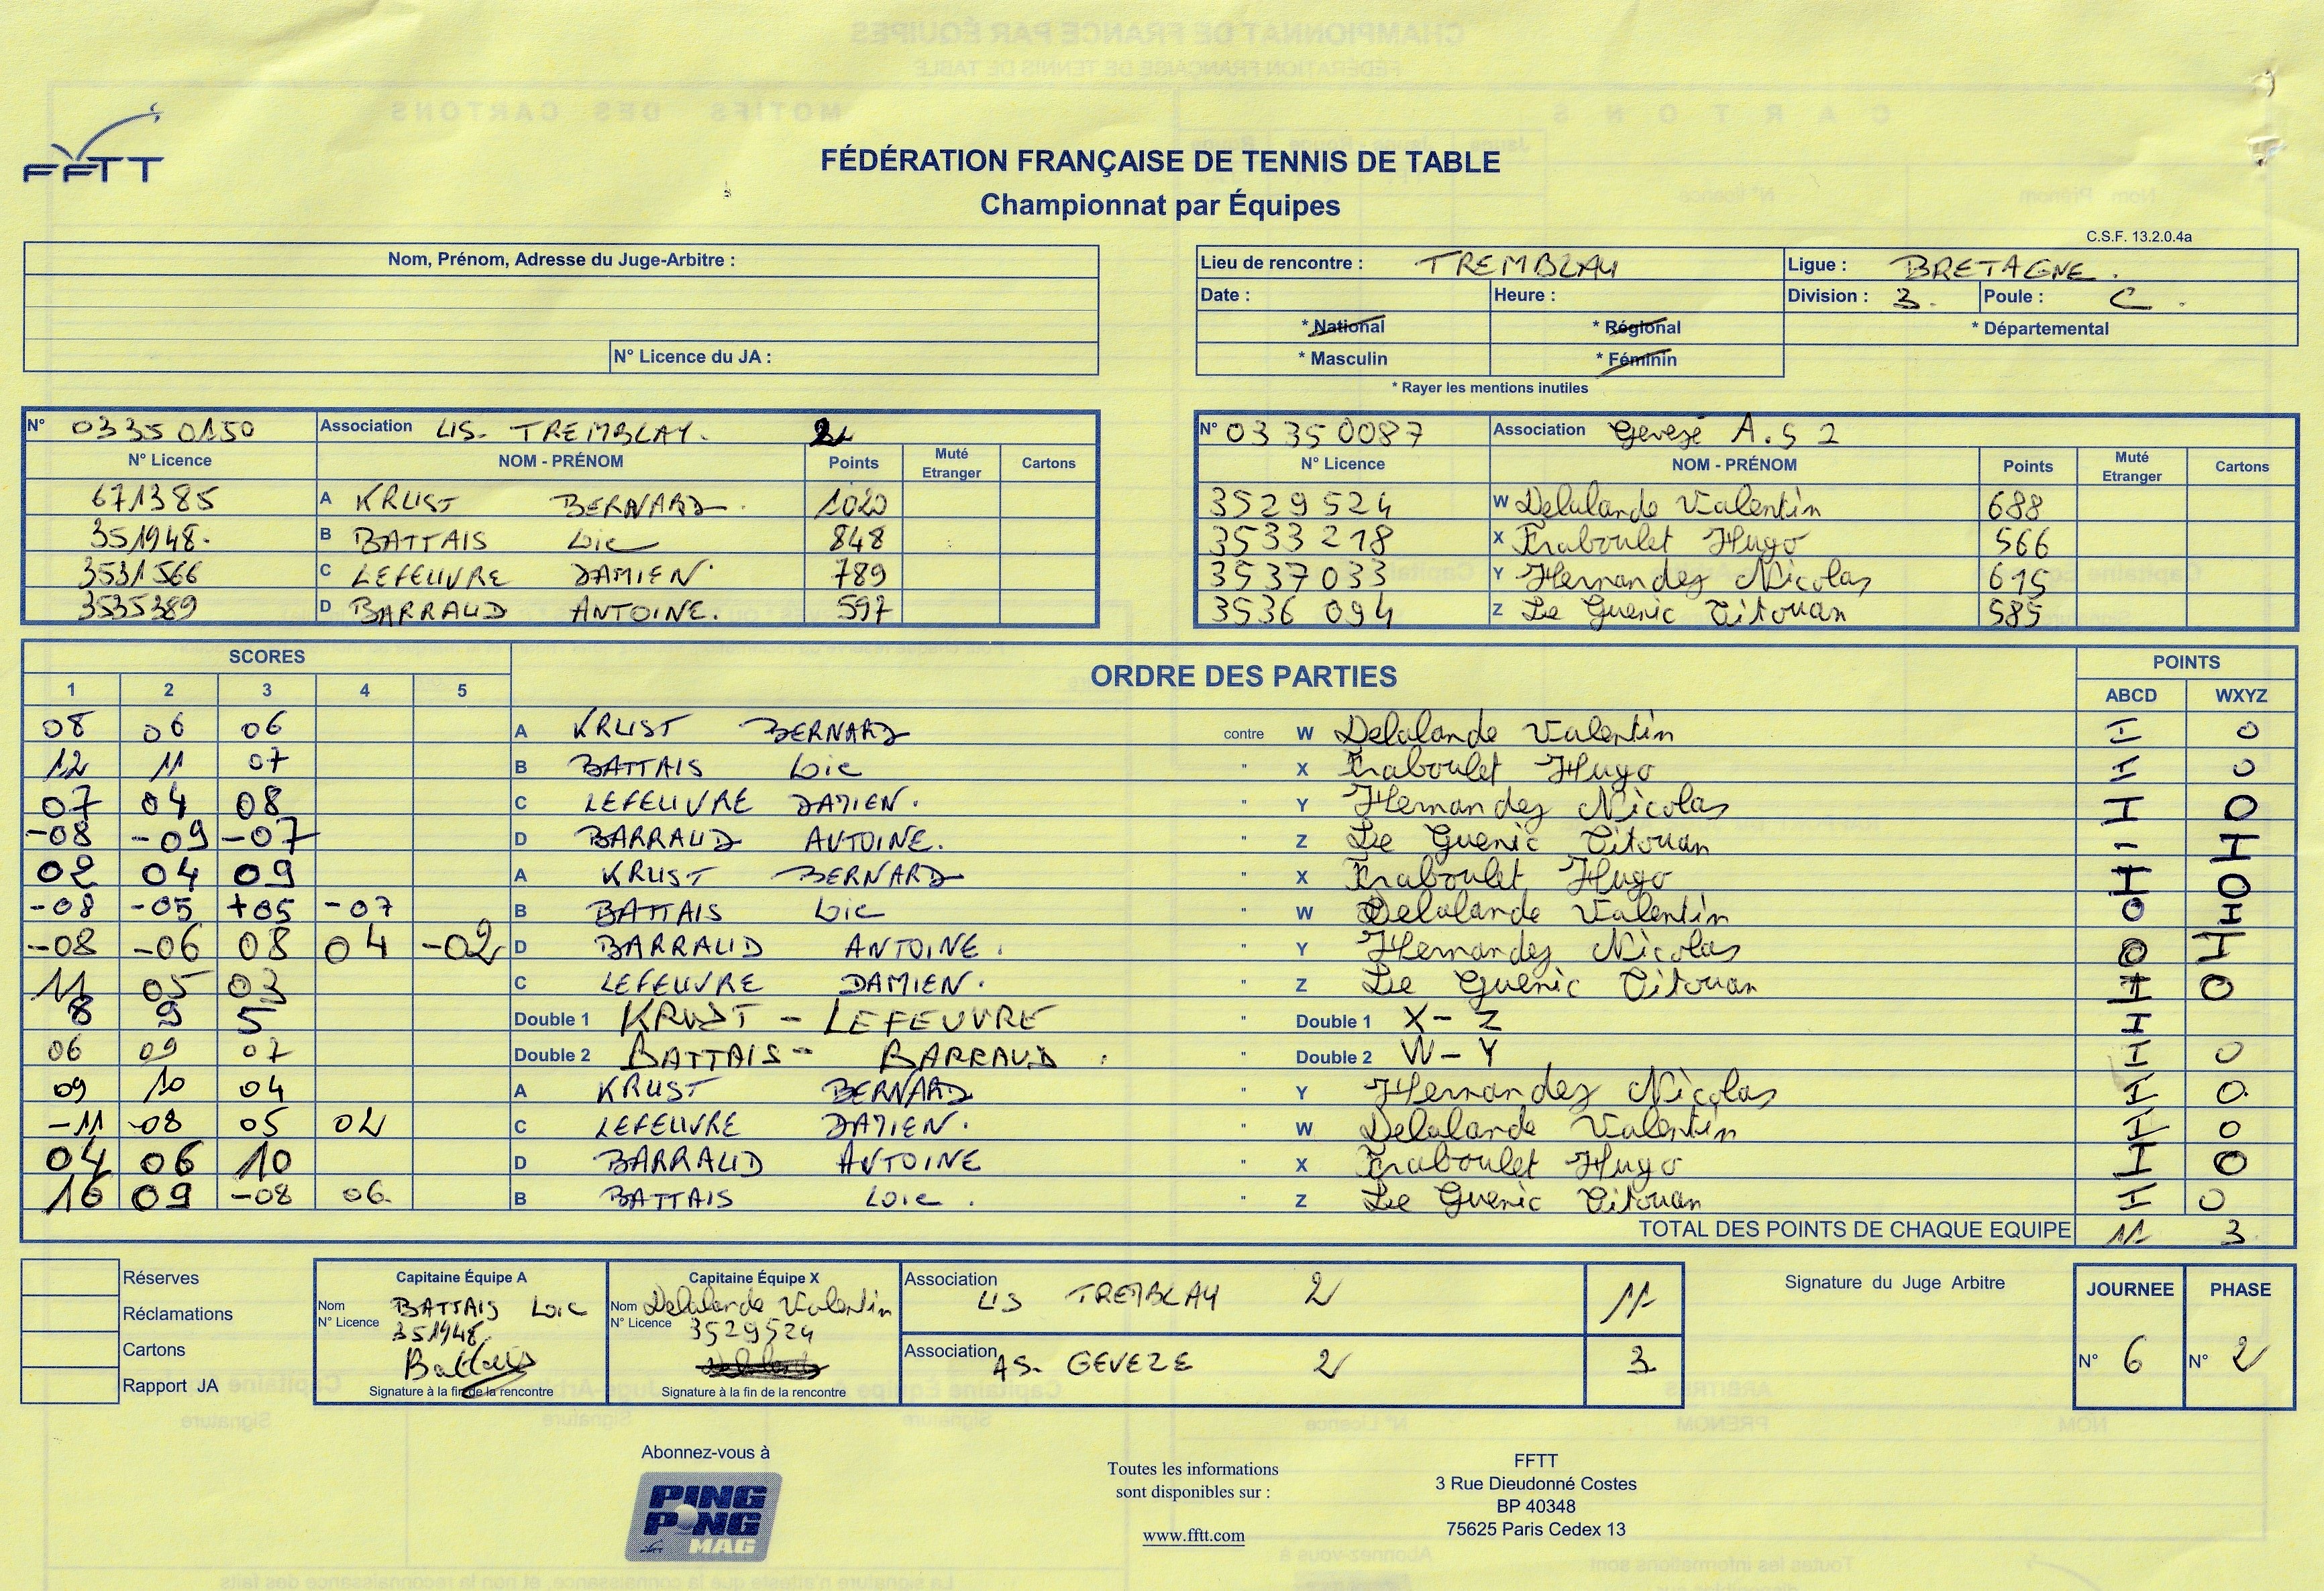 FFTT
FÉDÉRATION FRANÇAISE DE TENNIS DE TABLE
Championnat par Équipes
C.S.F. 13.2.0.4a
Nom, Prénom, Adresse du Juge-Arbitre :
N° Licence du JA :
Lieu de rencontre : TREMBLAY Ligue : BRETAGNE.
Date : Heure : Division : 3. Poule : C.
* National * Régional * Départemental
* Masculin * Féminin
* Rayer les mentions inutiles
N° 03350150 Association US. TREMBLAY. 2
N° Licence NOM - PRÉNOM Points Muté Etranger Cartons
671385 A KRUST BERNARD. 1020
351948. B BATTAIS Loic 848
3531566 C LEFEUVRE DAMIEN 789
3535389 D BARRAUD ANTOINE. 597
N° 03350087 Association Gevezé A.S 2
N° Licence NOM - PRÉNOM Points Muté Etranger Cartons
3529524 W Delalande Valentin 688
3533218 X Fraboulet Hugo 566
3537033 Y Hernandez Nicolas 615
3536094 Z Le Guenic Titouan 585
SCORES ORDRE DES PARTIES POINTS
1 2 3 4 5 ABCD WXYZ
08 06 06 A KRUST BERNARD contre W Delalande Valentin I 0
12 11 07 B BATTAIS Loic " X Fraboulet Hugo I 0
07 04 08 C LEFEUVRE DAMIEN. " Y Hernandez Nicolas I 0
-08 -09 -07 D BARRAUD ANTOINE. " Z Le Guenic Titouan - I
02 04 09 A KRUST BERNARD " X Fraboulet Hugo I 0
-08 -05 +05 -07 B BATTAIS Loic " W Delalande Valentin 0 I
-08 -06 08 04 -02 D BARRAUD ANTOINE. " Y Hernandez Nicolas 0 I
11 05 03 C LEFEUVRE DAMIEN. " Z Le Guenic Titouan I 0
8 9 5 Double 1 KRUST - LEFEUVRE " Double 1 X - Z I
06 09 07 Double 2 BATTAIS - BARRAUD. " Double 2 W - Y I 0
09 10 04 A KRUST BERNARD " Y Hernandez Nicolas I 0.
-11 -08 05 02 C LEFEUVRE DAMIEN. " W Delalande Valentin I 0
04 06 10 D BARRAUD ANTOINE " X Fraboulet Hugo I 0
10 09 -08 06. B BATTAIS Loic. " Z Le Guenic Titouan I 0
TOTAL DES POINTS DE CHAQUE EQUIPE 11 3
Réserves
Réclamations
Cartons
Rapport JA
Capitaine Équipe A
Nom BATTAIS Loic
N° Licence 351948
Battais
Signature à la fin de la rencontre
Capitaine Équipe X
Nom Delalande Valentin
N° Licence 3529524
Signature à la fin de la rencontre
Association US TREMBLAY 2 11
Association AS. GEVEZE 2 3
Signature du Juge Arbitre
JOURNEE PHASE
N° 6 N° 2
Abonnez-vous à
PING PONG MAG
Toutes les informations
sont disponibles sur :
www.fftt.com
FFTT
3 Rue Dieudonné Costes
BP 40348
75625 Paris Cedex 13